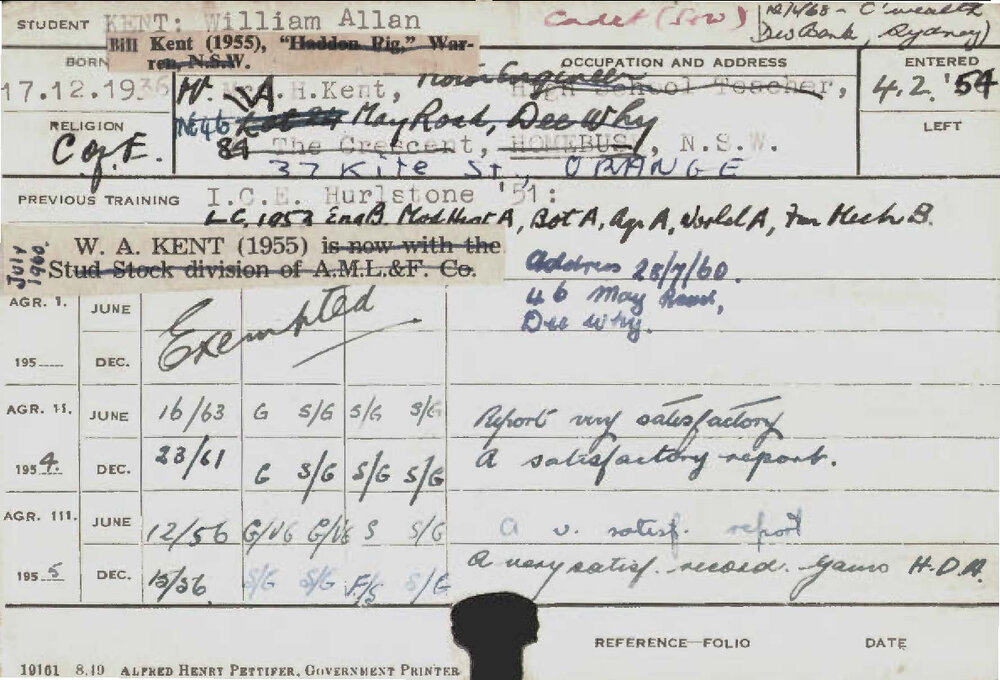 STUDENT KENT: William Allan Cadet (Sow) 12/4/63 - C'wealth
Bill Kent (1955), "Haddon Rig," War- Dev Bank, Sydney)
ren, N.S.W.
BORN OCCUPATION AND ADDRESS ENTERED
17.12.1936 Mr. A. H. Kent, High School Teacher, 4.2.'54
RELIGION No 46 May Road, Dee Why LEFT
C of E. 84 The Crescent, HOMEBUSH, N.S.W.
37 Kite St., ORANGE
PREVIOUS TRAINING I.C.E. Hurlstone '51:
L.C. 1953 Eng B. Mod Hist A, Bot A, Agr A, Wool A, Far Mech B.
JULY 1960. W. A. KENT (1955) is now with the
Stud Stock division of A.M.L.&F. Co.
Address 28/7/60.
46 May Road,
Dee Why.
AGR. 1. JUNE Exempted
195 DEC.
AGR. 11. JUNE 16/63 G S/G S/G S/G Report very satisfactory
1954. DEC. 23/61 G S/G S/G S/G A satisfactory report.
AGR. 111. JUNE 12/56 G/VG G/VG S S/G A v. satisf. report
1955 DEC. 15/56 S/G S/G F/S S/G A very satisf. record. Gains H.D.A.
REFERENCE FOLIO DATE
19161 8.49 ALFRED HENRY PETTIFER, GOVERNMENT PRINTER